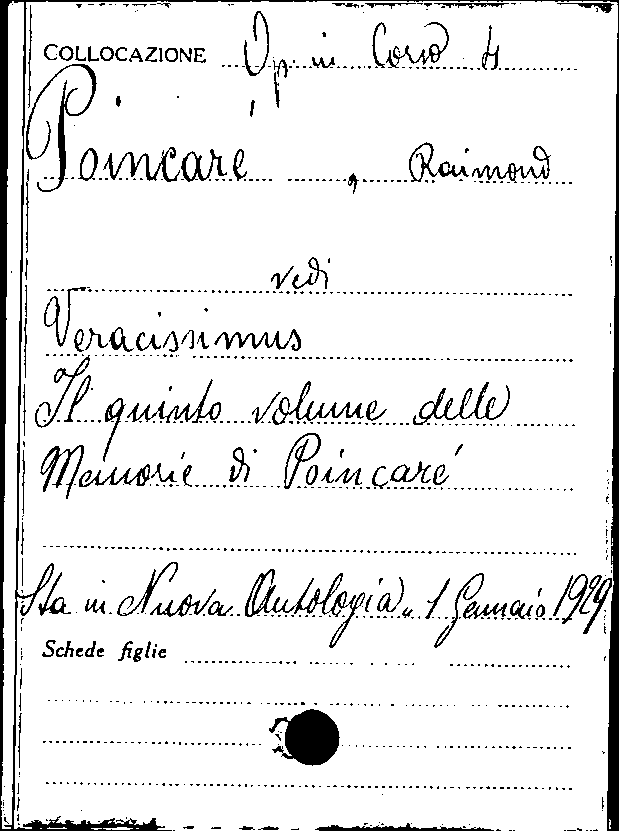 COLLOCAZIONE Op. in Corso 4
Poincaré, Raimond
vedi
Veracissimus
Il quinto volume delle
Memorie di Poincaré
Sta in Nuova Antologia„ 1 Gennaio 1929
Schede figlie